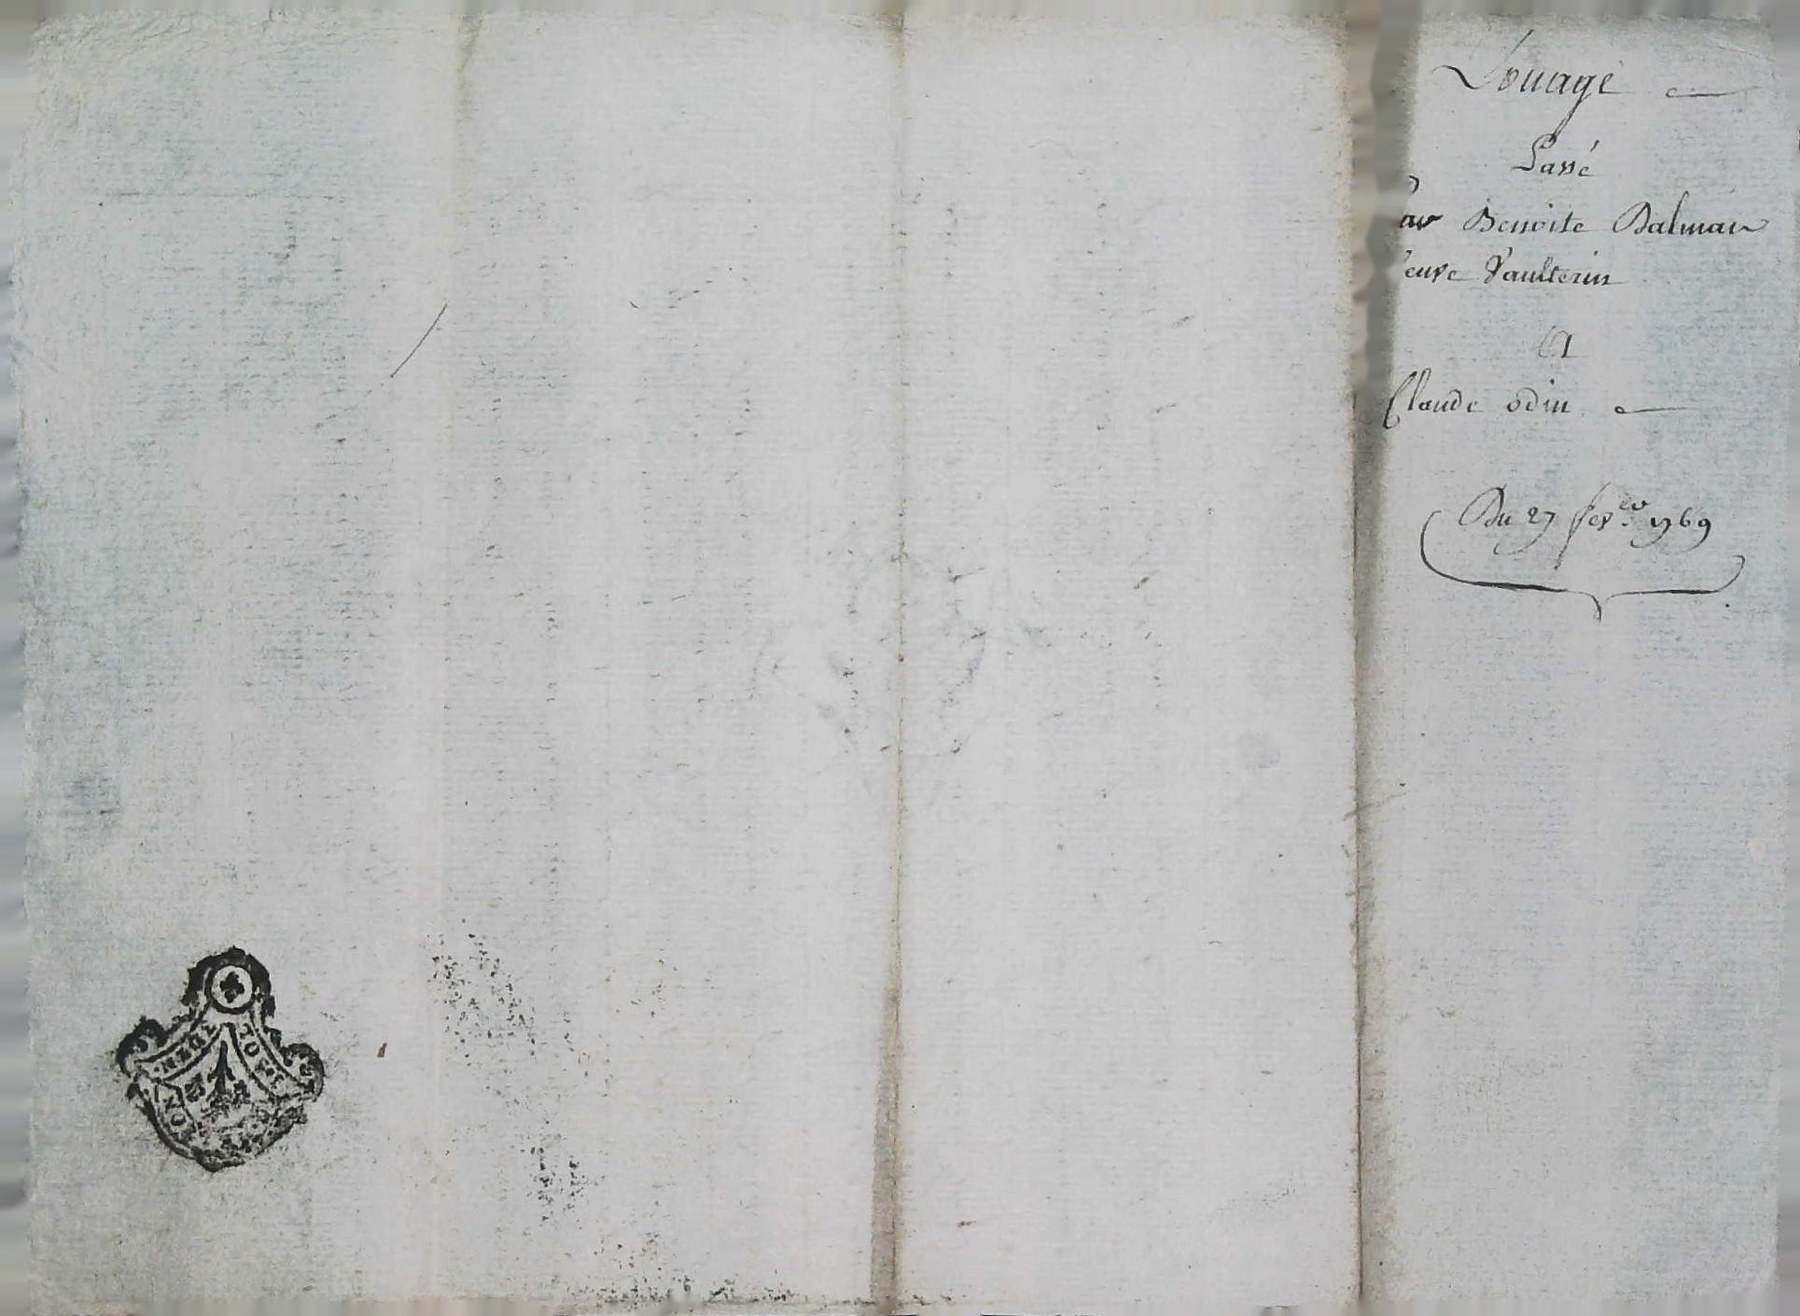 Louage
Passé
Par Benoite Dalmais
veuve Vaulterin
A
Claude odin
Du 27 fever 1769